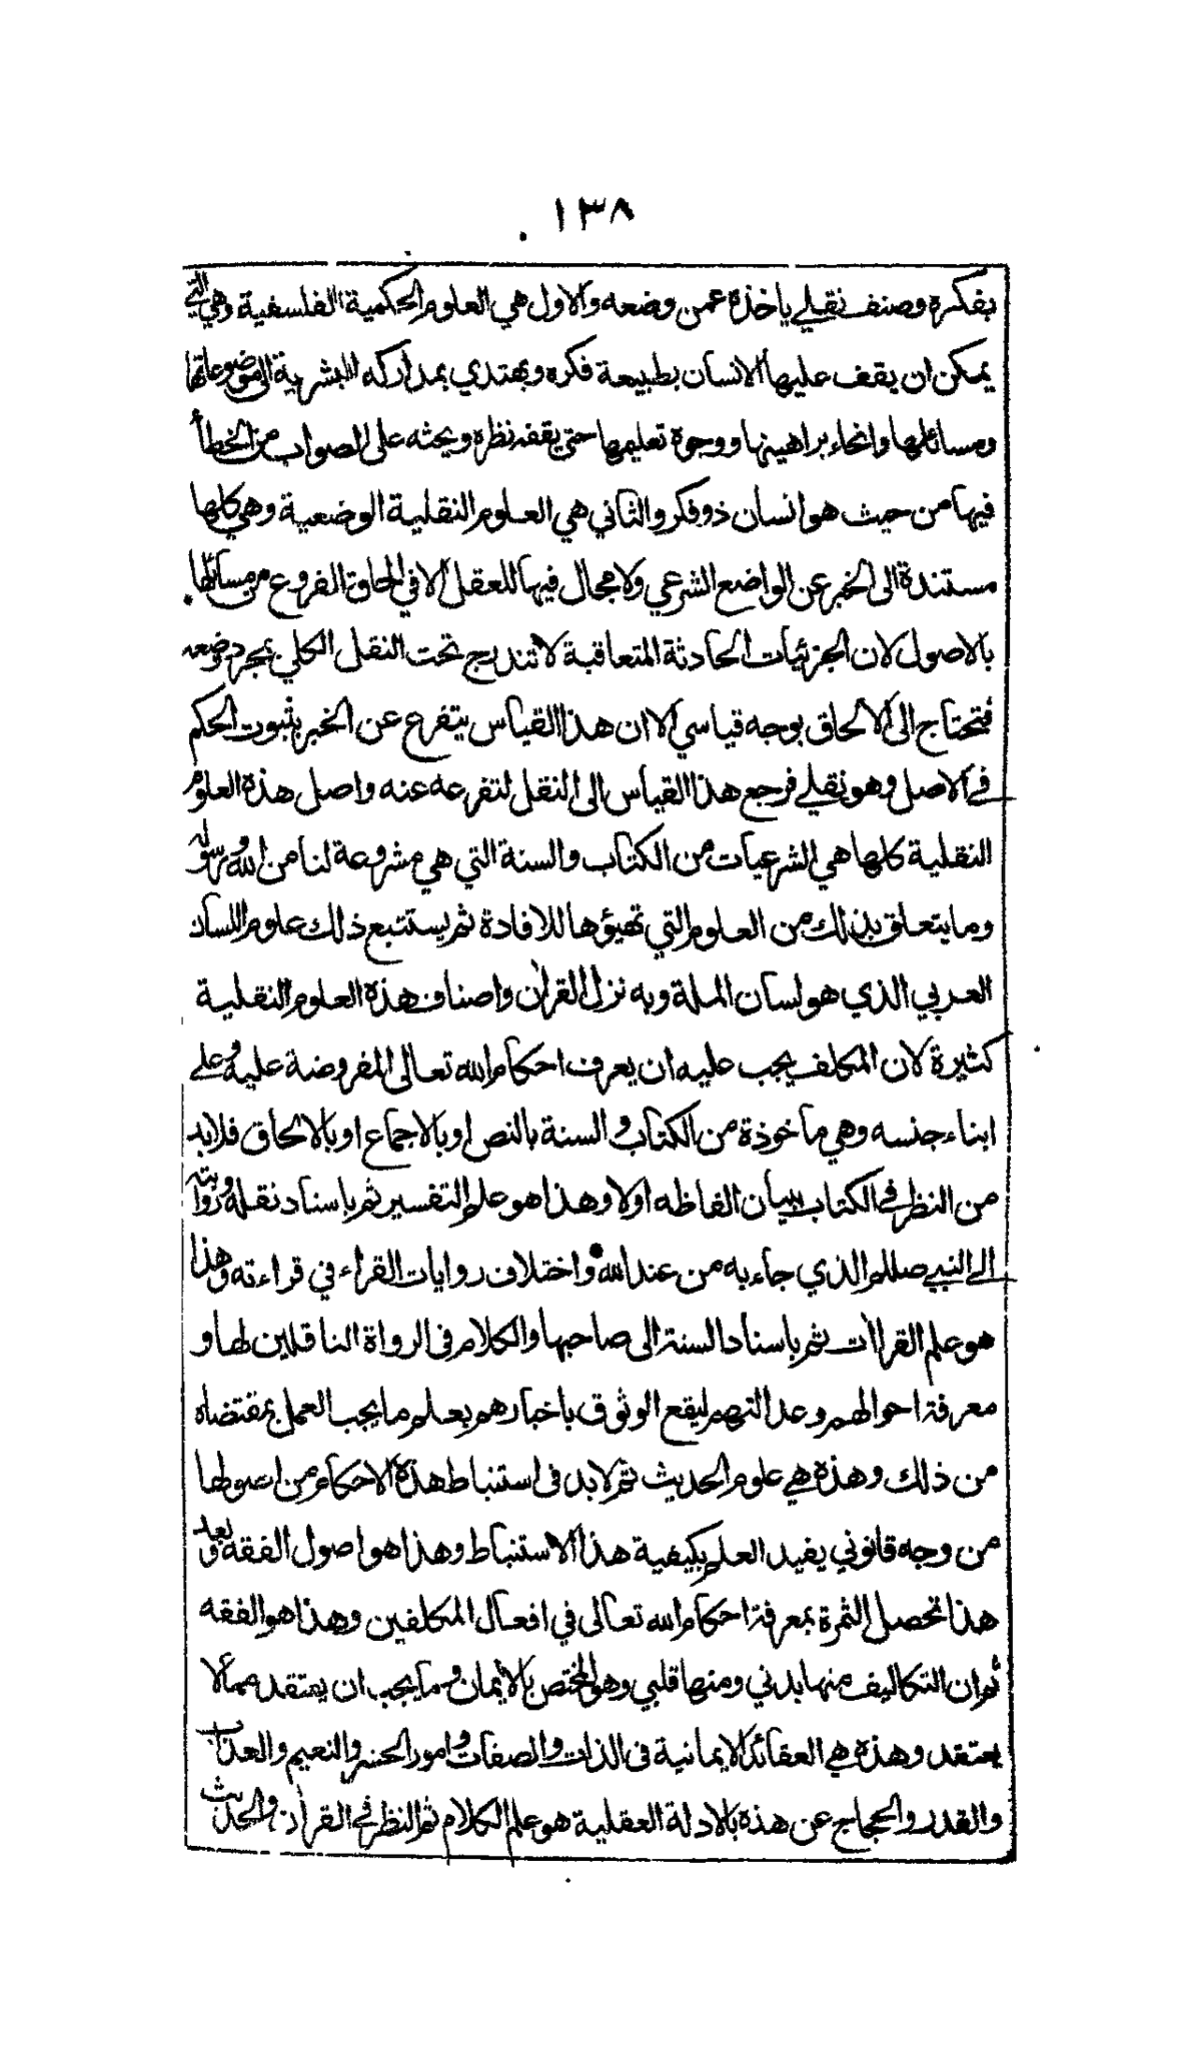 ١٣٨
بفكرة وصنف نقلي ياخذه عمن وضعه والاول هي العلوم الحكمية الفلسفية وهي التي
يمكن ان يقف عليها الانسان بطبيعة فكره ويهتدي بمداركه البشرية الى موضوعاتها
ومسائلها وانحاء براهينها ووجوه تعليمها حتى يقفه نظره ويحثه على الصواب من الخطأ
فيها من حيث هو انسان ذو فكر والثاني هي العلوم النقلية الوضعية وهي كلها
مستندة الى الخبر عن الواضع الشرعي ولا مجال فيها للعقل الا في الحاق الفروع من مسائلها
بالاصول لان الجزئيات الحادثة المتعاقبة لا تندرج تحت النقل الكلي بمجرد وضعه
فتحتاج الى الالحاق بوجه قياسي الا ان هذا القياس يتفرع عن الخبر بثبوت الحكم
في الاصل وهو نقلي فرجع هذا القياس الى النقل لتفرعه عنه واصل هذه العلوم
النقلية كلها هي الشرعيات من الكتاب والسنة التي هي مشروعة لنا من الله ورسوله
وما يتعلق بذلك من العلوم التي تهيؤها للافادة ثم يستتبع ذلك علوم اللسان
العربي الذي هو لسان الملة وبه نزل القران واصناف هذه العلوم النقلية
كثيرة لان المكلف يجب عليه ان يعرف احكام الله تعالى المفروضة عليه وعلى
ابناء جنسه وهي مأخوذة من الكتاب و السنة بالنص او بالاجماع او بالالحاق فلابد
من النظر في الكتاب ببيان الفاظه اولا وهذا هو علم التفسير ثم باسناد نقله وروايته
الى النبي صللم الذي جاء به من عند الله واختلاف روايات القراء في قراءته وهذا
هو علم القراات ثم باسناد السنة الى صاحبها والكلام في الرواة الناقلين لها و
معرفة احوالهم وعدالتهم ليقع الوثوق باخبارهم بعلم ما يجب العمل بمقتضاه
من ذلك وهذه هي علوم الحديث ثم لابد في استنباط هذه الاحكام من اصولها
من وجه قانوني يفيد العلم بكيفية هذا الاستنباط وهذا هو اصول الفقه وبعد
هذا تحصل الثمرة بمعرفة احكام الله تعالى في افعال المكلفين وهذا هو الفقه
ثم ان التكاليف منها بدني ومنها قلبي وهو المختص بالايمان وما يجب ان يعتقد مما لا
يعتقد وهذه هي العقائد الايمانية في الذات والصفات و امور الحشر والنعيم والعذاب
والقدر والحجاج عن هذه بالادلة العقلية هو علم الكلام ثم النظر في القران والحديث